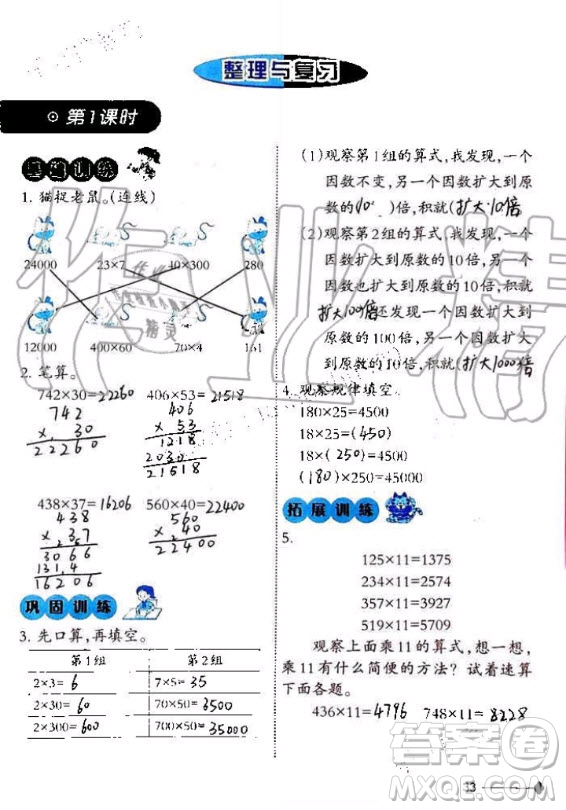 整理与复习
第1课时
基础训练
1. 猫捉老鼠。(连线)
24000 23×7 40×300 280
12000 400×60 70×4 161
2. 笔算。
742×30=22260 406×53=21518
742
× 30
22260
406
× 53
1218
2030
21518
438×37=16206 560×40=22400
438
× 37
3066
1314
16206
560
× 40
22400
巩固训练
3. 先口算,再填空。
第1组 第2组
2×3=6 7×5=35
2×30=60 70×50=3500
2×300=600 700×50=35000
(1)观察第1组的算式,我发现,一个
因数不变,另一个因数扩大到原
数的(10)倍,积就(扩大10倍
(2)观察第2组的算式,我发现,一个
因数扩大到原来的10倍,另一个
因数也扩大到原数的10倍,积就
扩大100倍还发现一个因数扩大到
原数的100倍,另一个因数扩大到
原数的10倍,积就(扩大1000倍
4. 观察规律填空。
180×25=4500
18×25=(450)
18×(250)=4500
(180)×250=45000
拓展训练
5.
125×11=1375
234×11=2574
357×11=3927
519×11=5709
观察上面乘11的算式,想一想,
乘11有什么简便的方法?试着速算
下面各题。
436×11=4796 748×11=8228
13
作业精灵
答案圈
MXQE.COM